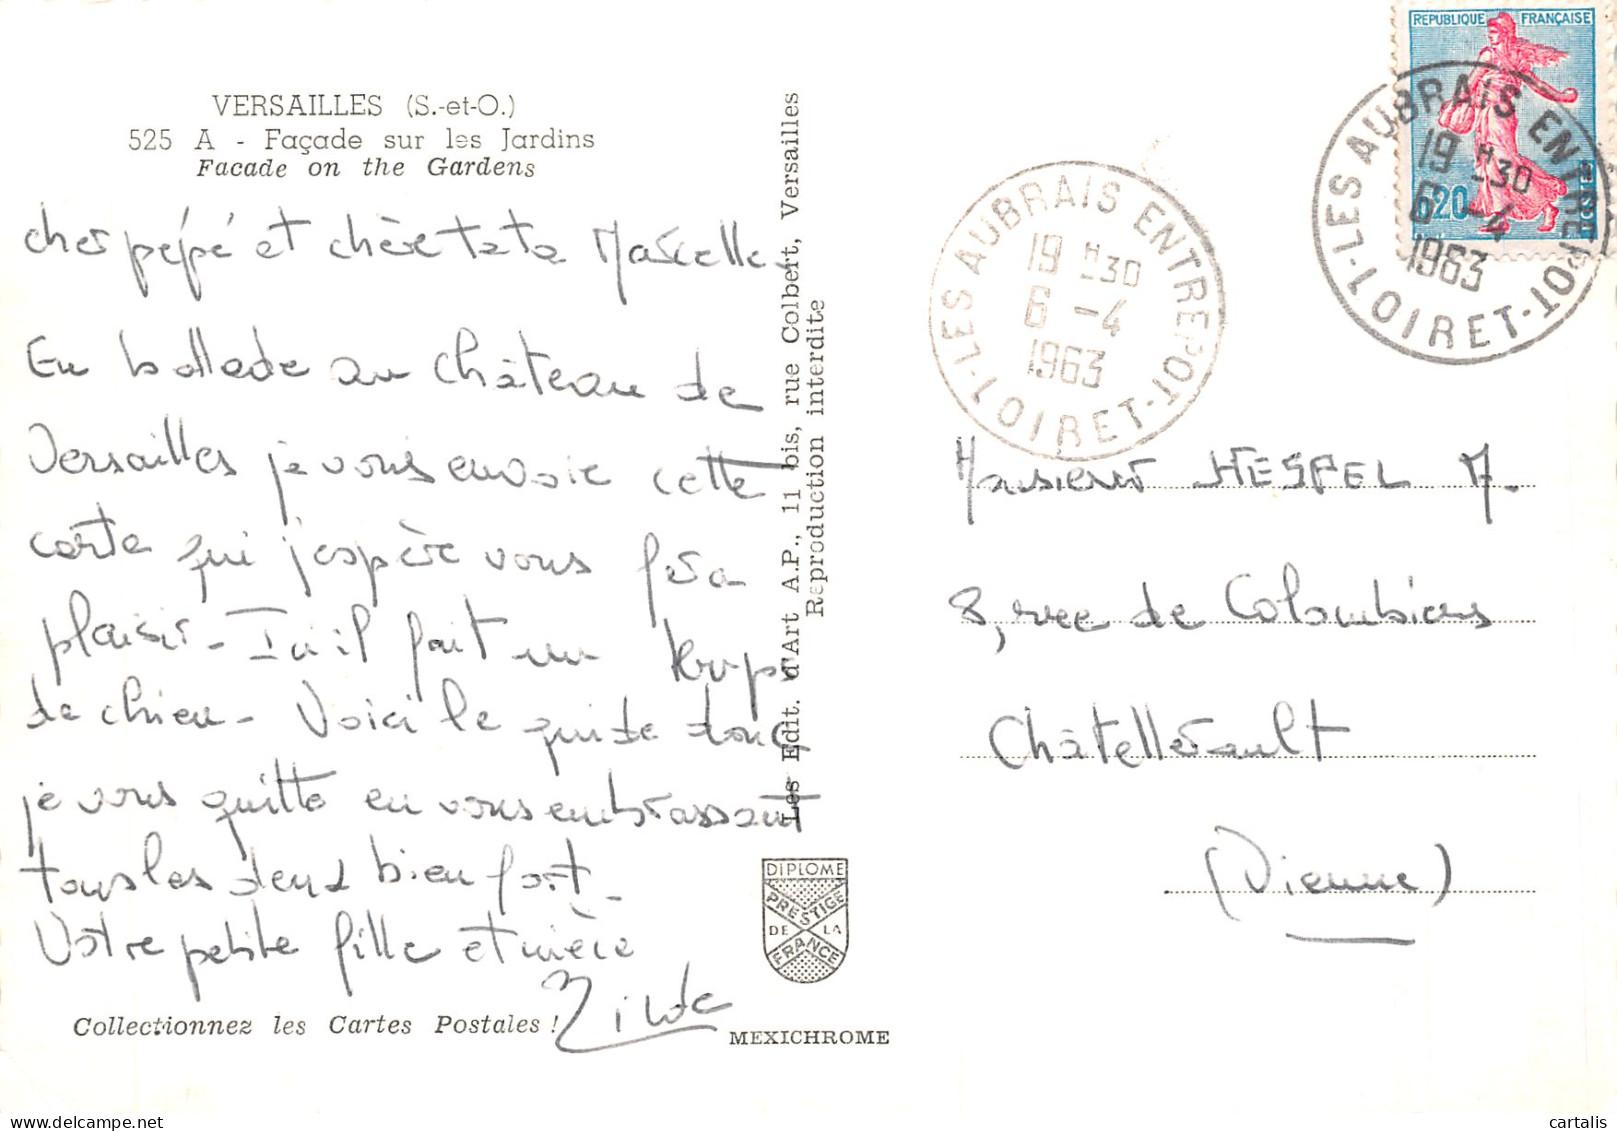 VERSAILLES (S.-et-O.)
525 A - Façade sur les Jardins
Facade on the Gardens
cher pépé et chère tata Marcelle.
En ballade au château de
Versailles je vous envoie cette
carte qui j'espère vous fera
plaisir - Ici il fait un temps
de chien - Voici le guide donc
je vous quitte en vous embrassant
tous les deux bien fort.
Votre petite fille et nièce
Collectionnez les Cartes Postales !
Les Edit. d'Art A.P., 11 bis, rue Colbert, Versailles
Reproduction interdite
DIPLOME
PRESTIGE
DE LA
FRANCE
MEXICHROME
REPUBLIQUE FRANÇAISE
0,20
LES AUBRAIS ENTREPOT
19 H 30
6 - 4
1963
LOIRET
LES AUBRAIS ENTREPOT
19 H 30
6 - 4
1963
LOIRET
Monsieur HESPEL M.
8, rue de Colombiers
Châtellerault
(Vienne)
cartalis